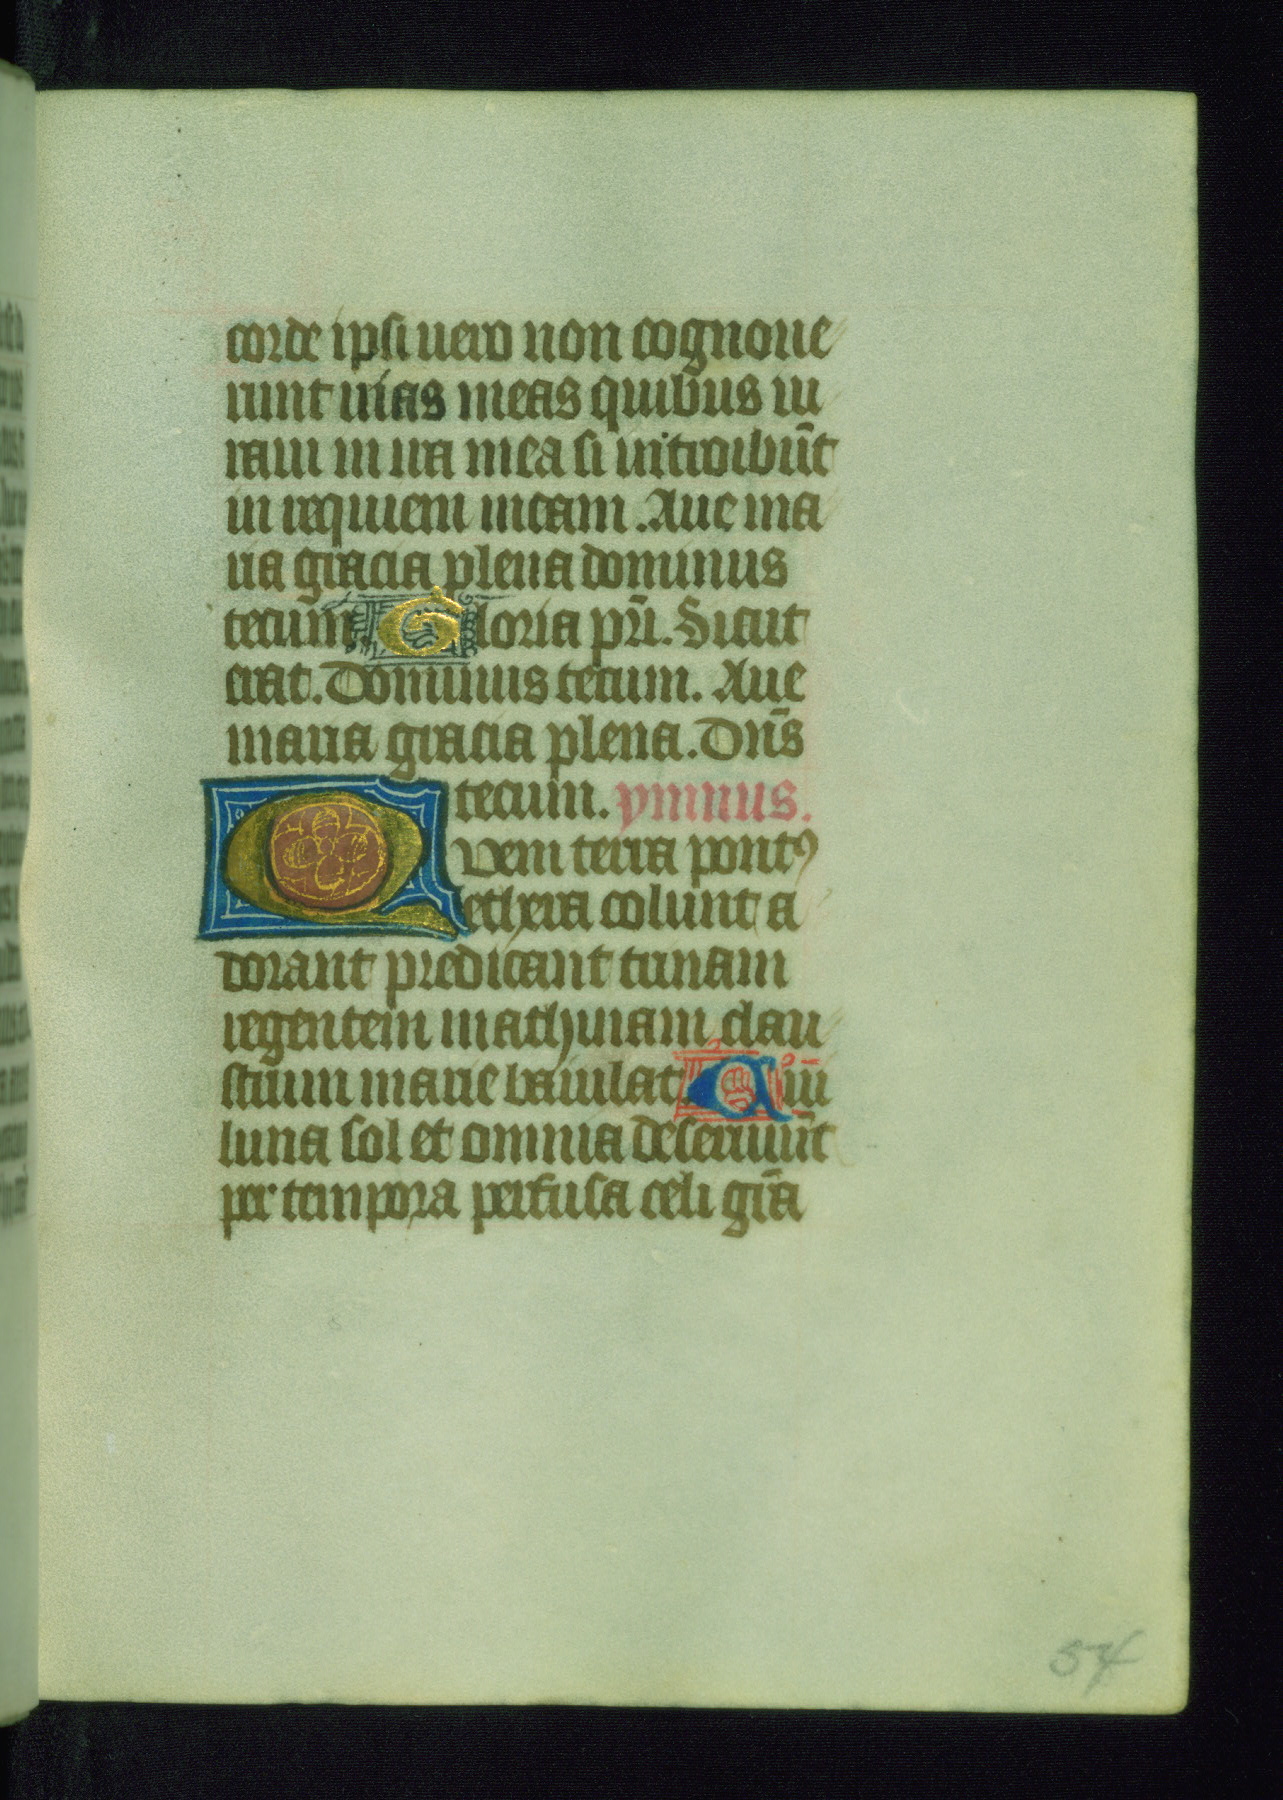 corde ipsi uero non cognoue
runt uias meas quibus iu
raui in ira mea si introibūt
in requiem meam. Aue ma
ria gracia plena dominus
tecum. Gloria pr̄i. Sicut
erat. Dominus tecum. Aue
maria gracia plena. Dn̄s
tecum. ymnus.
Quem terra pontꝰ
ethera colunt a
dorant predicant trinam
regentem machinam clau
strum marie baiulat. Cui
luna sol et omnia deseruiūt
per tempora perfusa celi gr̄a
57